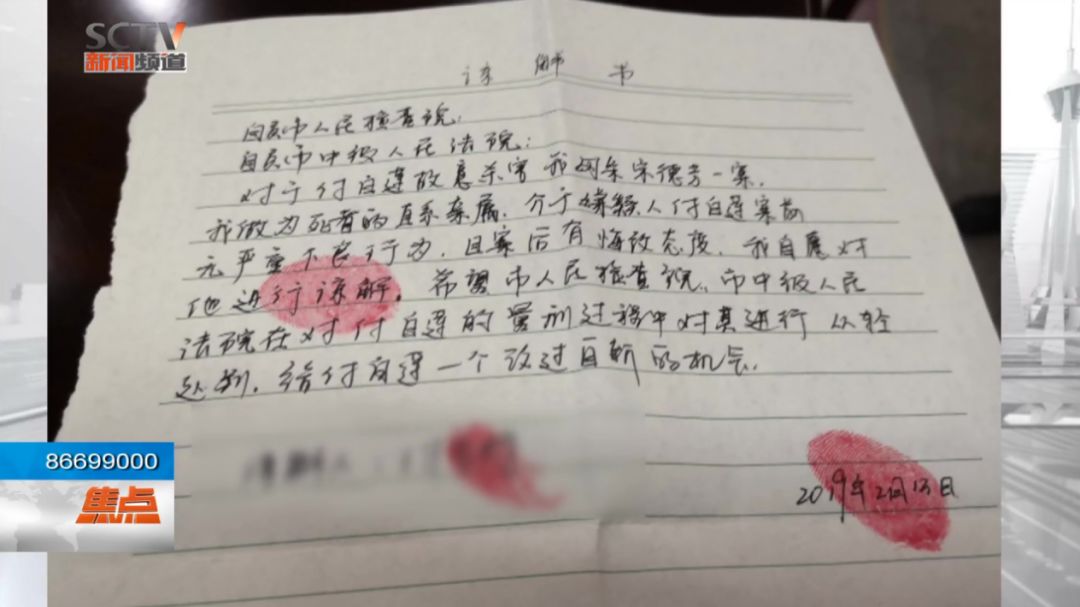 SCTV
新闻频道
谅解书
自贡市人民检查院:
自贡市中级人民法院:
对于付自建故意杀害我母亲宋德芳一案,
我做为死者的直系亲属,介于嫌疑人付自建案前
无严重不良行为,且案后有悔改态度,我自愿对
他进行谅解。希望市人民检查院、市中级人民
法院在对付自建的量刑过程中对其进行从轻
处判,给付自建一个改过自新的机会。
2019年2月13日
86699000
焦点